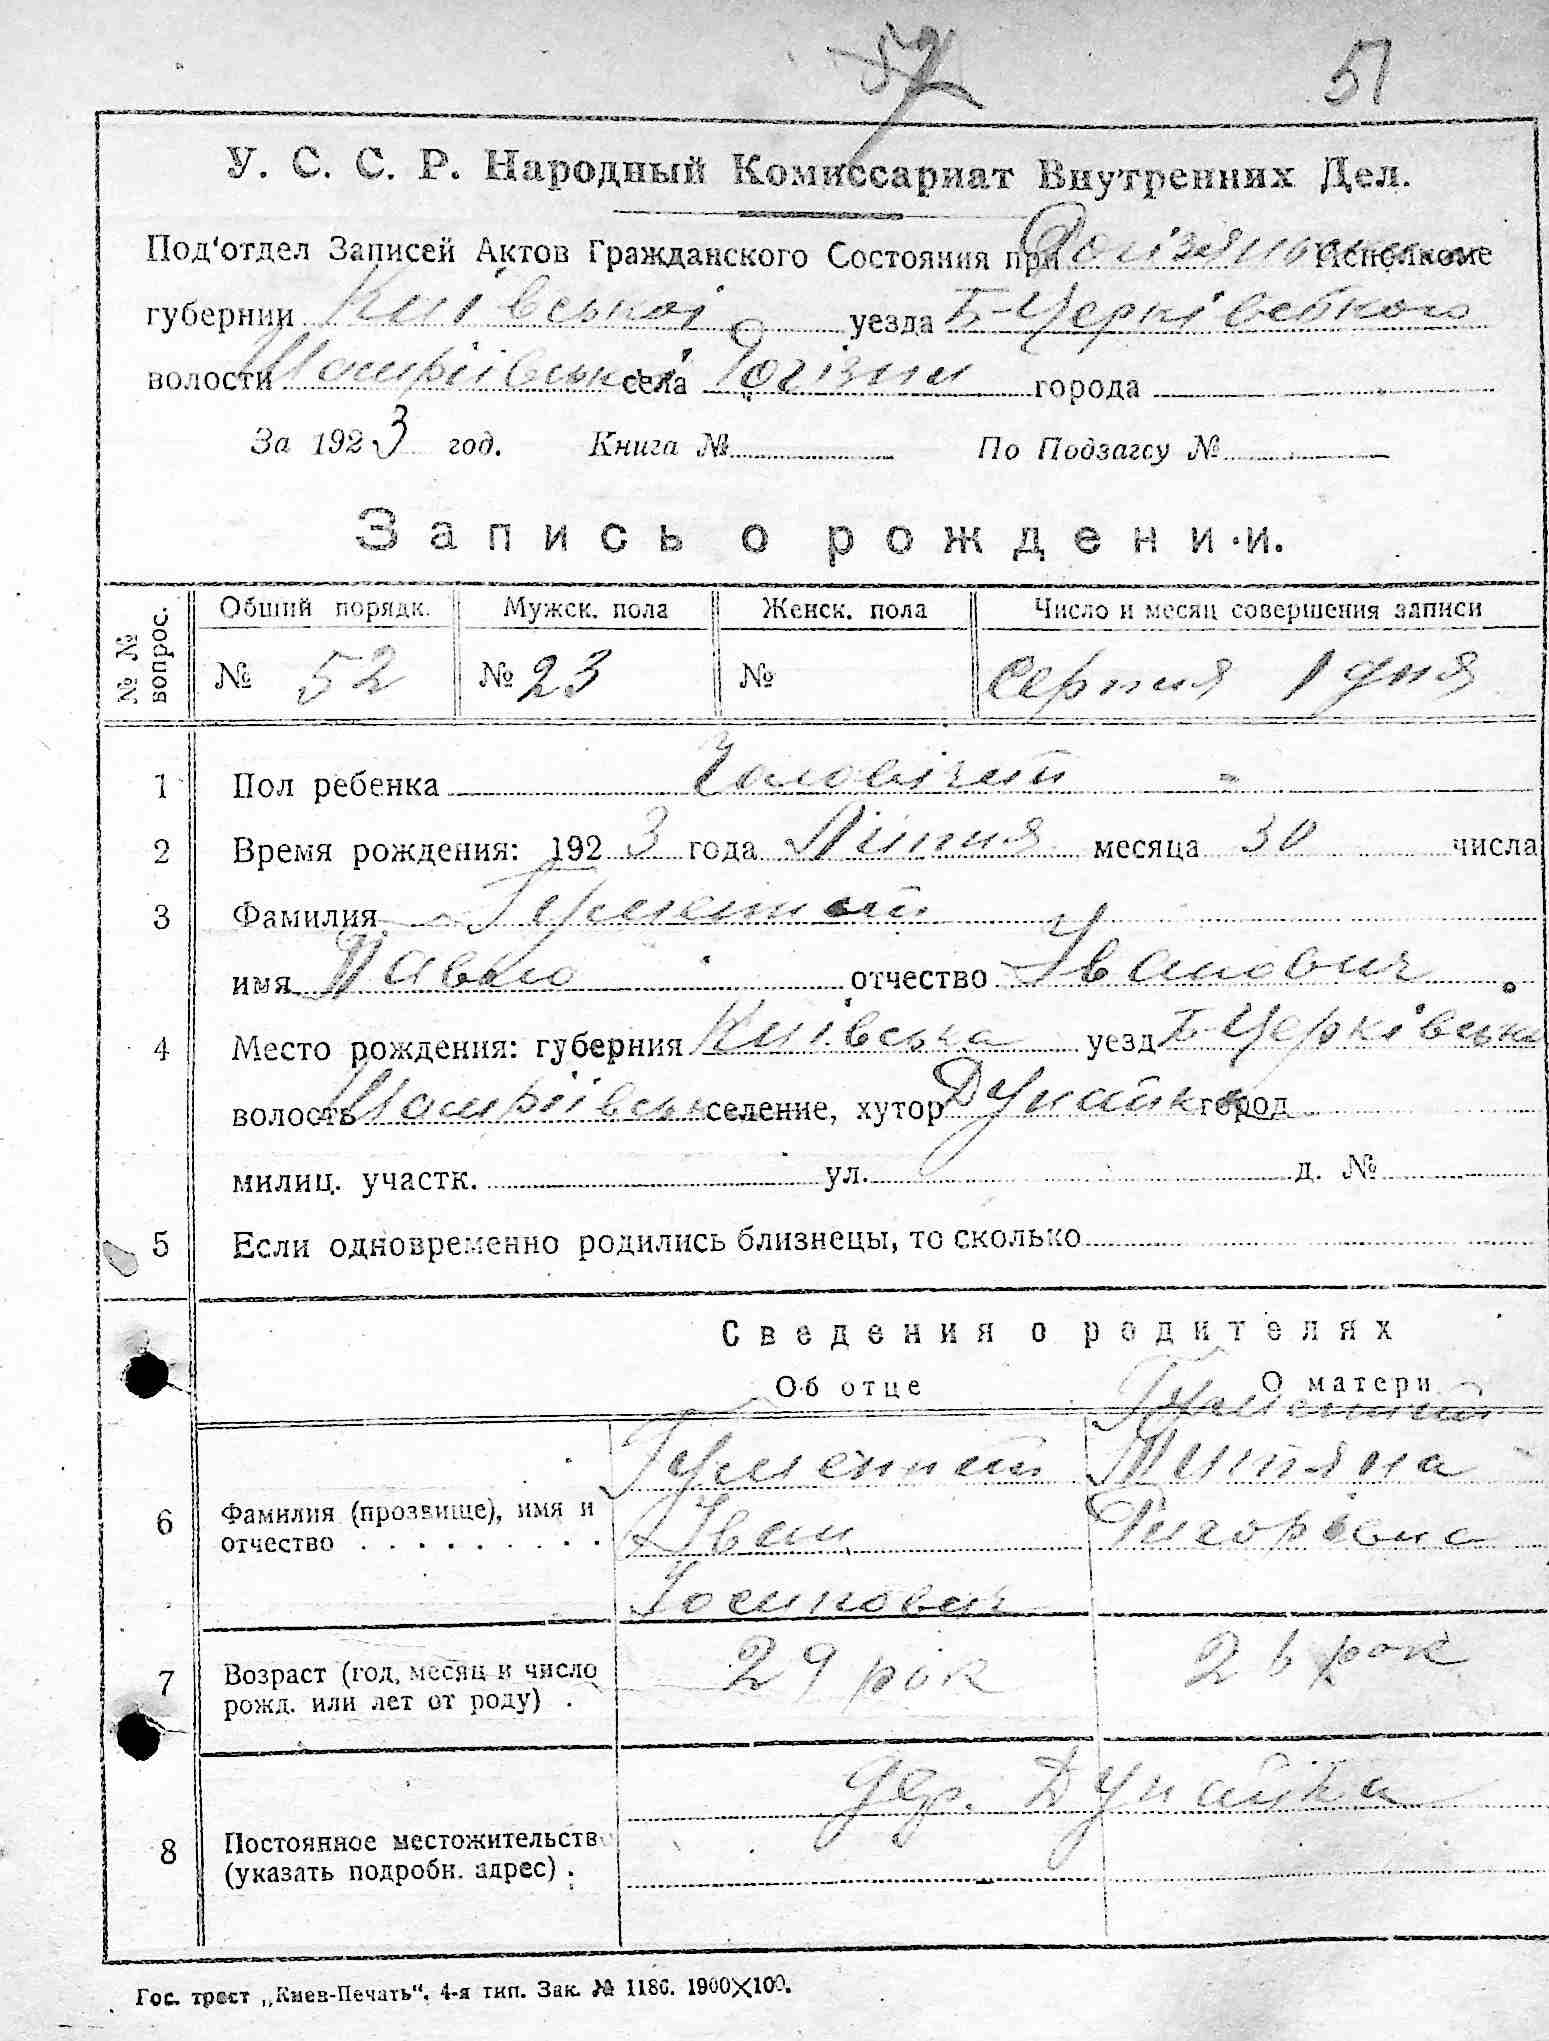 51
У. С. С. Р. Народный Комиссариат Внутренних Дел.
Под'отдел Записей Актов Гражданского Состояния при Исполкоме
губернии Київської уезда Б-Церківського
волости села Рогізни города
За 1923 год. Книга № По Подзагсу №
Запись о рождении.
№ № вопрос. Общий порядк. Мужск. пола Женск. пола Число и месяц совершения записи
№ 52 № 23 № Серпня 1 дня
1 Пол ребенка Чоловічий
2 Время рождения: 1923 года Липня месяца 30 числа
3 Фамилия
имя Павло отчество Іванович
4 Место рождения: губерния Київська уезд Б-Церківськ
волость селение, хутор Дунайка город
милиц. участк. ул. д. №
5 Если одновременно родились близнецы, то сколько
Сведения о родителях
Об отце О матери
6 Фамилия (прозвище), имя и
отчество Іван
Йосипович
7 Возраст (год, месяц и число 29 рок 26 рок
рожд. или лет от роду)
дер. Дунайка
8 Постоянное местожительств
(указать подробн. адрес)
Гос. трест „Киев-Печать“, 4-я тип. Зак. № 1186. 1900×100.